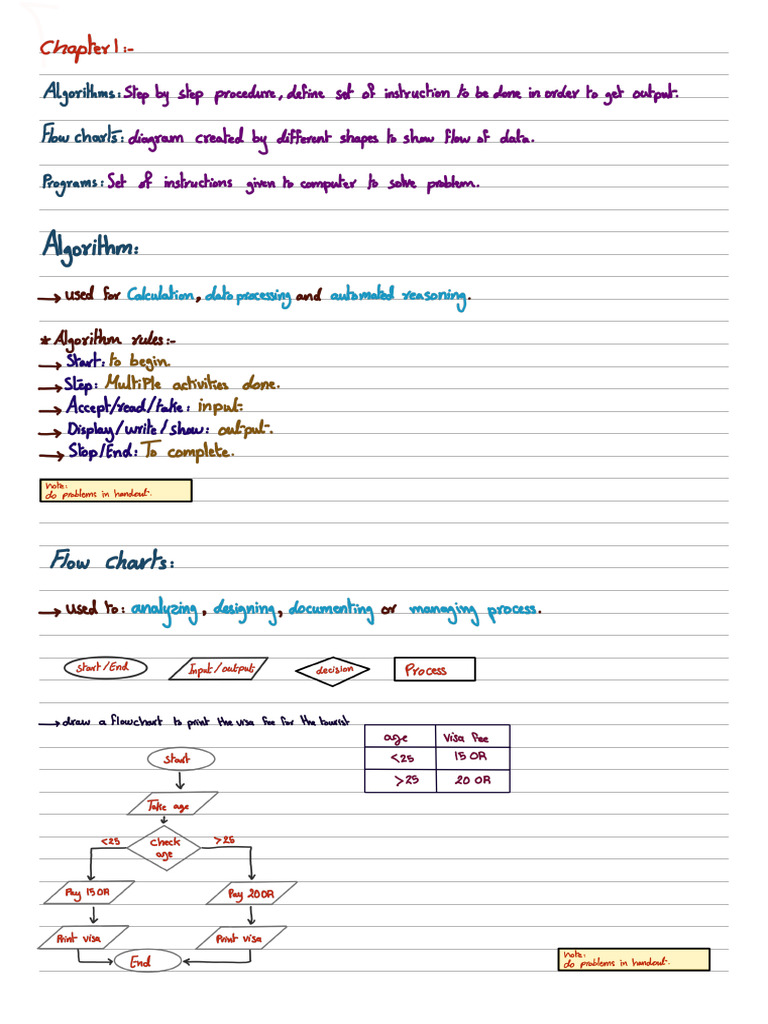 Chapter 1:-
Algorithms: Step by step procedure, define set of instruction to be done in order to get output.
Flow charts: diagram created by different shapes to show flow of data.
Programs: Set of instructions given to computer to solve problem.
Algorithm:
→ used for Calculation, data processing and automated reasoning.
* Algorithm rules:-
→ Start: to begin
→ Step: Multiple activities done.
→ Accept/read/take: input.
→ Display/write/show: output.
→ Stop/End: To complete.
note:
do problems in handout.
Flow charts:
→ used to: analyzing, designing, documenting or managing process.
Start/End Input/output decision Process
→ draw a flowchart to print the visa fee for the tourist
age visa fee
<25 15 OR
>25 20 OR
Start
Take age
<25 check age >25
Pay 15 OR Pay 20 OR
Print visa Print visa
End
note:
do problems in handout.